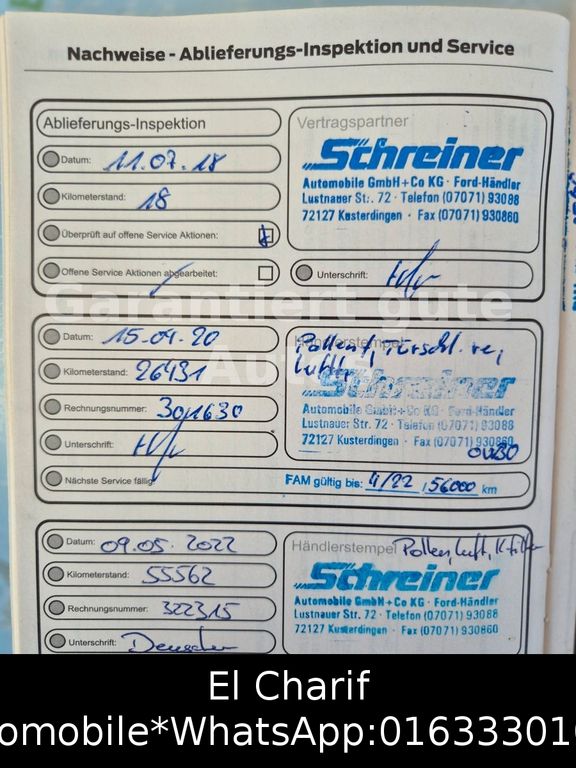 Nachweise - Ablieferungs-Inspektion und Service
Ablieferungs-Inspektion
Datum: 11.07.18
Kilometerstand: 18
Überprüft auf offene Service Aktionen:
Offene Service Aktionen abgearbeitet:
Vertragspartner
Schreiner
Automobile GmbH+Co KG · Ford-Händler
Lustnauer Str. 72 · Telefon (07071) 93088
72127 Kusterdingen · Fax (07071) 930860
Unterschrift:
Garantiert gute
Autos
Datum: 15.04.20
Kilometerstand: 26431
Rechnungsnummer: 301630
Unterschrift:
Nächste Service fällig
Pollenf, Türschl. re,
Luftf,
Händlerstempel
Schreiner
Automobile GmbH+Co KG · Ford-Händler
Lustnauer Str. 72 · Telefon (07071) 93088
72127 Kusterdingen · Fax (07071) 930860
0W30
FAM gültig bis: 4/22, 56000 km
Datum: 09.05.2022
Kilometerstand: 55562
Rechnungsnummer: 322315
Unterschrift:
Händlerstempel Pollen, Luft,
Schreiner
Automobile GmbH+Co KG · Ford-Händler
Lustnauer Str. 72 · Telefon (07071) 93088
72127 Kusterdingen · Fax (07071) 930860
El Charif
omobile*WhatsApp:016333301